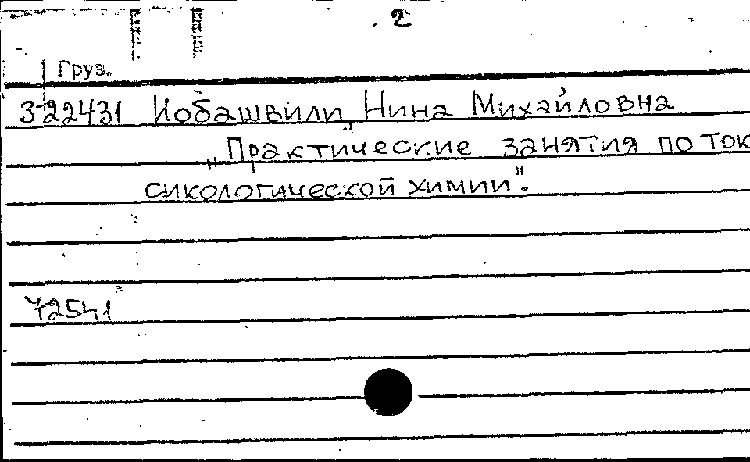 2
Груз.
3-22431 Иобашвили, Нина Михайловна
„Практические занятия по ток
сикологической химии".
72541